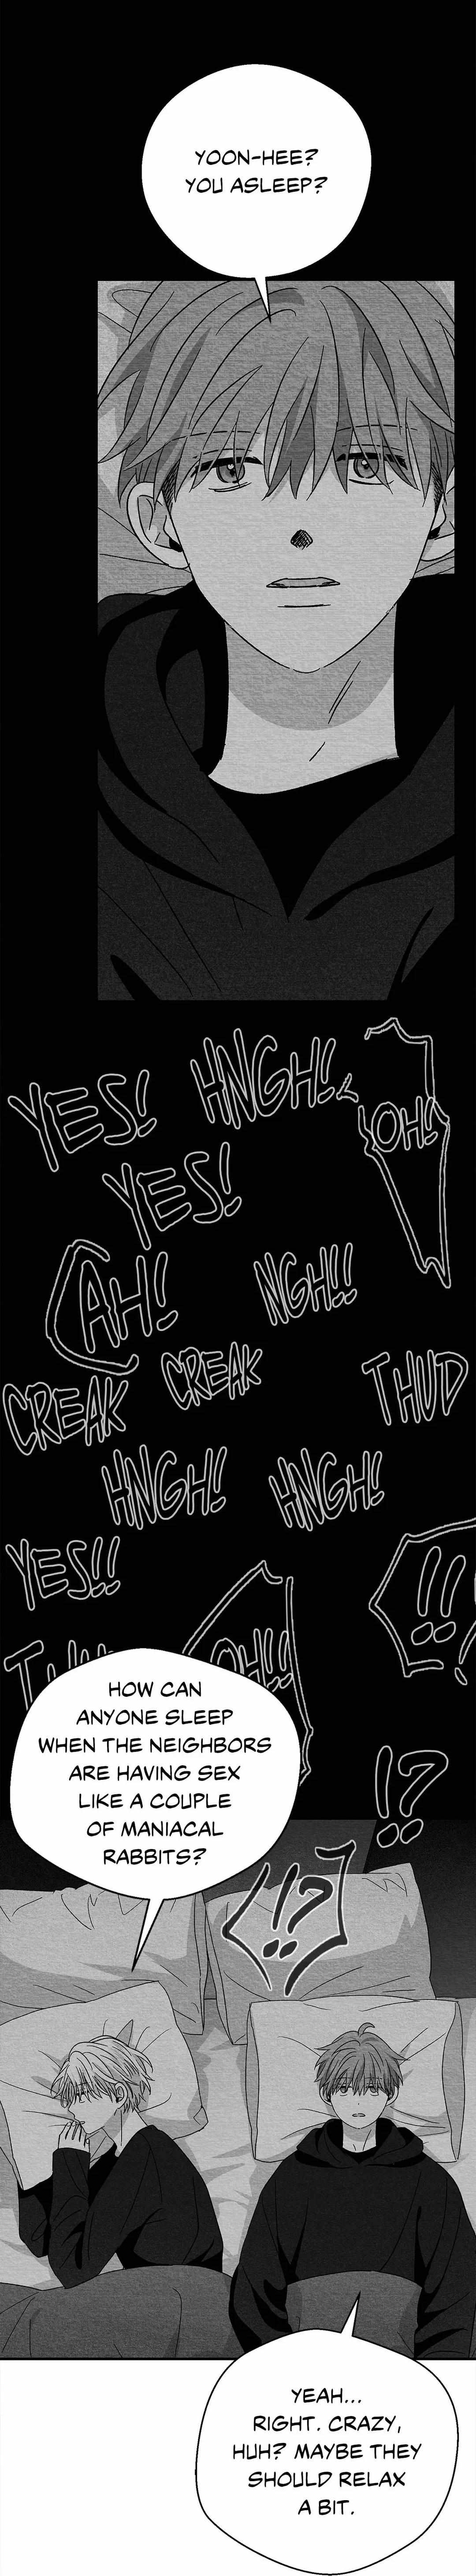 YOON-HEE?
YOU ASLEEP?
YES!
HNGH!
OH!
YES!
AH!
NGH!!
CREAK
CREAK
THUD
HNGH!
HNGH!
YES!!
!!
OH!!
HOW CAN
ANYONE SLEEP
WHEN THE NEIGHBORS
ARE HAVING SEX
LIKE A COUPLE
OF MANIACAL
RABBITS?
!?
!!?
YEAH...
RIGHT. CRAZY,
HUH? MAYBE THEY
SHOULD RELAX
A BIT.